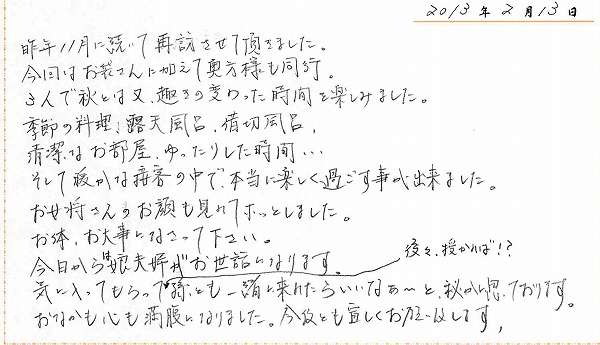 2013年2月13日
昨年11月に続いて再訪させて頂きました。
今回はお父さんに加えて奥方様も同行。
3人で秋とは又、趣きの変わった時間を楽しみました。
季節の料理、露天風呂、貸切風呂、
清潔なお部屋、ゆったりした時間…
そして暖かな接客の中で、本当に楽しく過ごす事が出来ました。
お女将さんのお顔も見れてホッとしました。
お体、お大事になさって下さい。
今日から娘夫婦がお世話になります。
後々、授かれば!?
気に入ってもらって 、とも一緒に来れたらいいなぁ〜と、秘かに思っております。
おなかも心も満腹になりました。今後とも宜しくお願い致します。